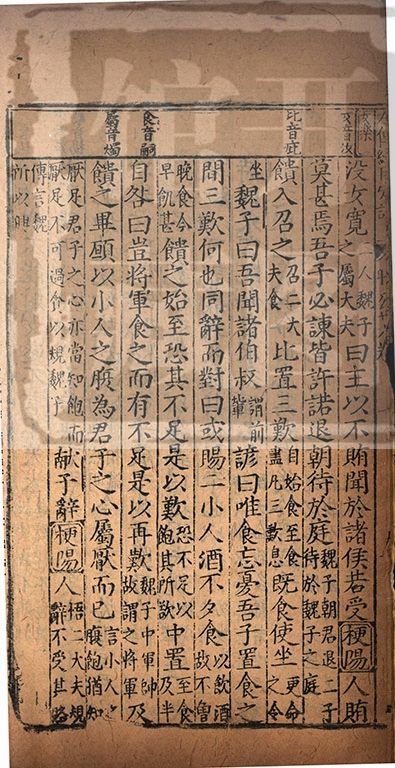 女音汝
没女寬二人魏子之屬大夫曰主以不賄聞於諸侯若受梗陽人賄
莫甚焉吾子必諫皆許諾退朝待於庭魏子朝君退二子待於魏子之庭
比音庇
饋入召之召二大夫食比置三歎自始食至食盡凡三歎息既食使坐更命之令
坐魏子曰吾聞諸伯叔謂前輩諺曰唯食忘憂吾子置食之
間三歎何也同辭而對曰或賜二小人酒不夕食以飲酒故不
食音嗣
晚食今早飢甚饋之始至恐其不足是以歎恐不足以飽其所歎中置至食及半
自咎曰豈將軍食之而有不足是以再歎魏子中軍帥故謂之將軍及
屬音燭
饋之畢願以小人之腹為君子之心屬厭而已言小人之腹飽猶知
厭足君子之心亦當知飽而厭足不可過食以規魏子獻子辭梗陽人悟二大夫規辭不受其賂
傳言魏所以興